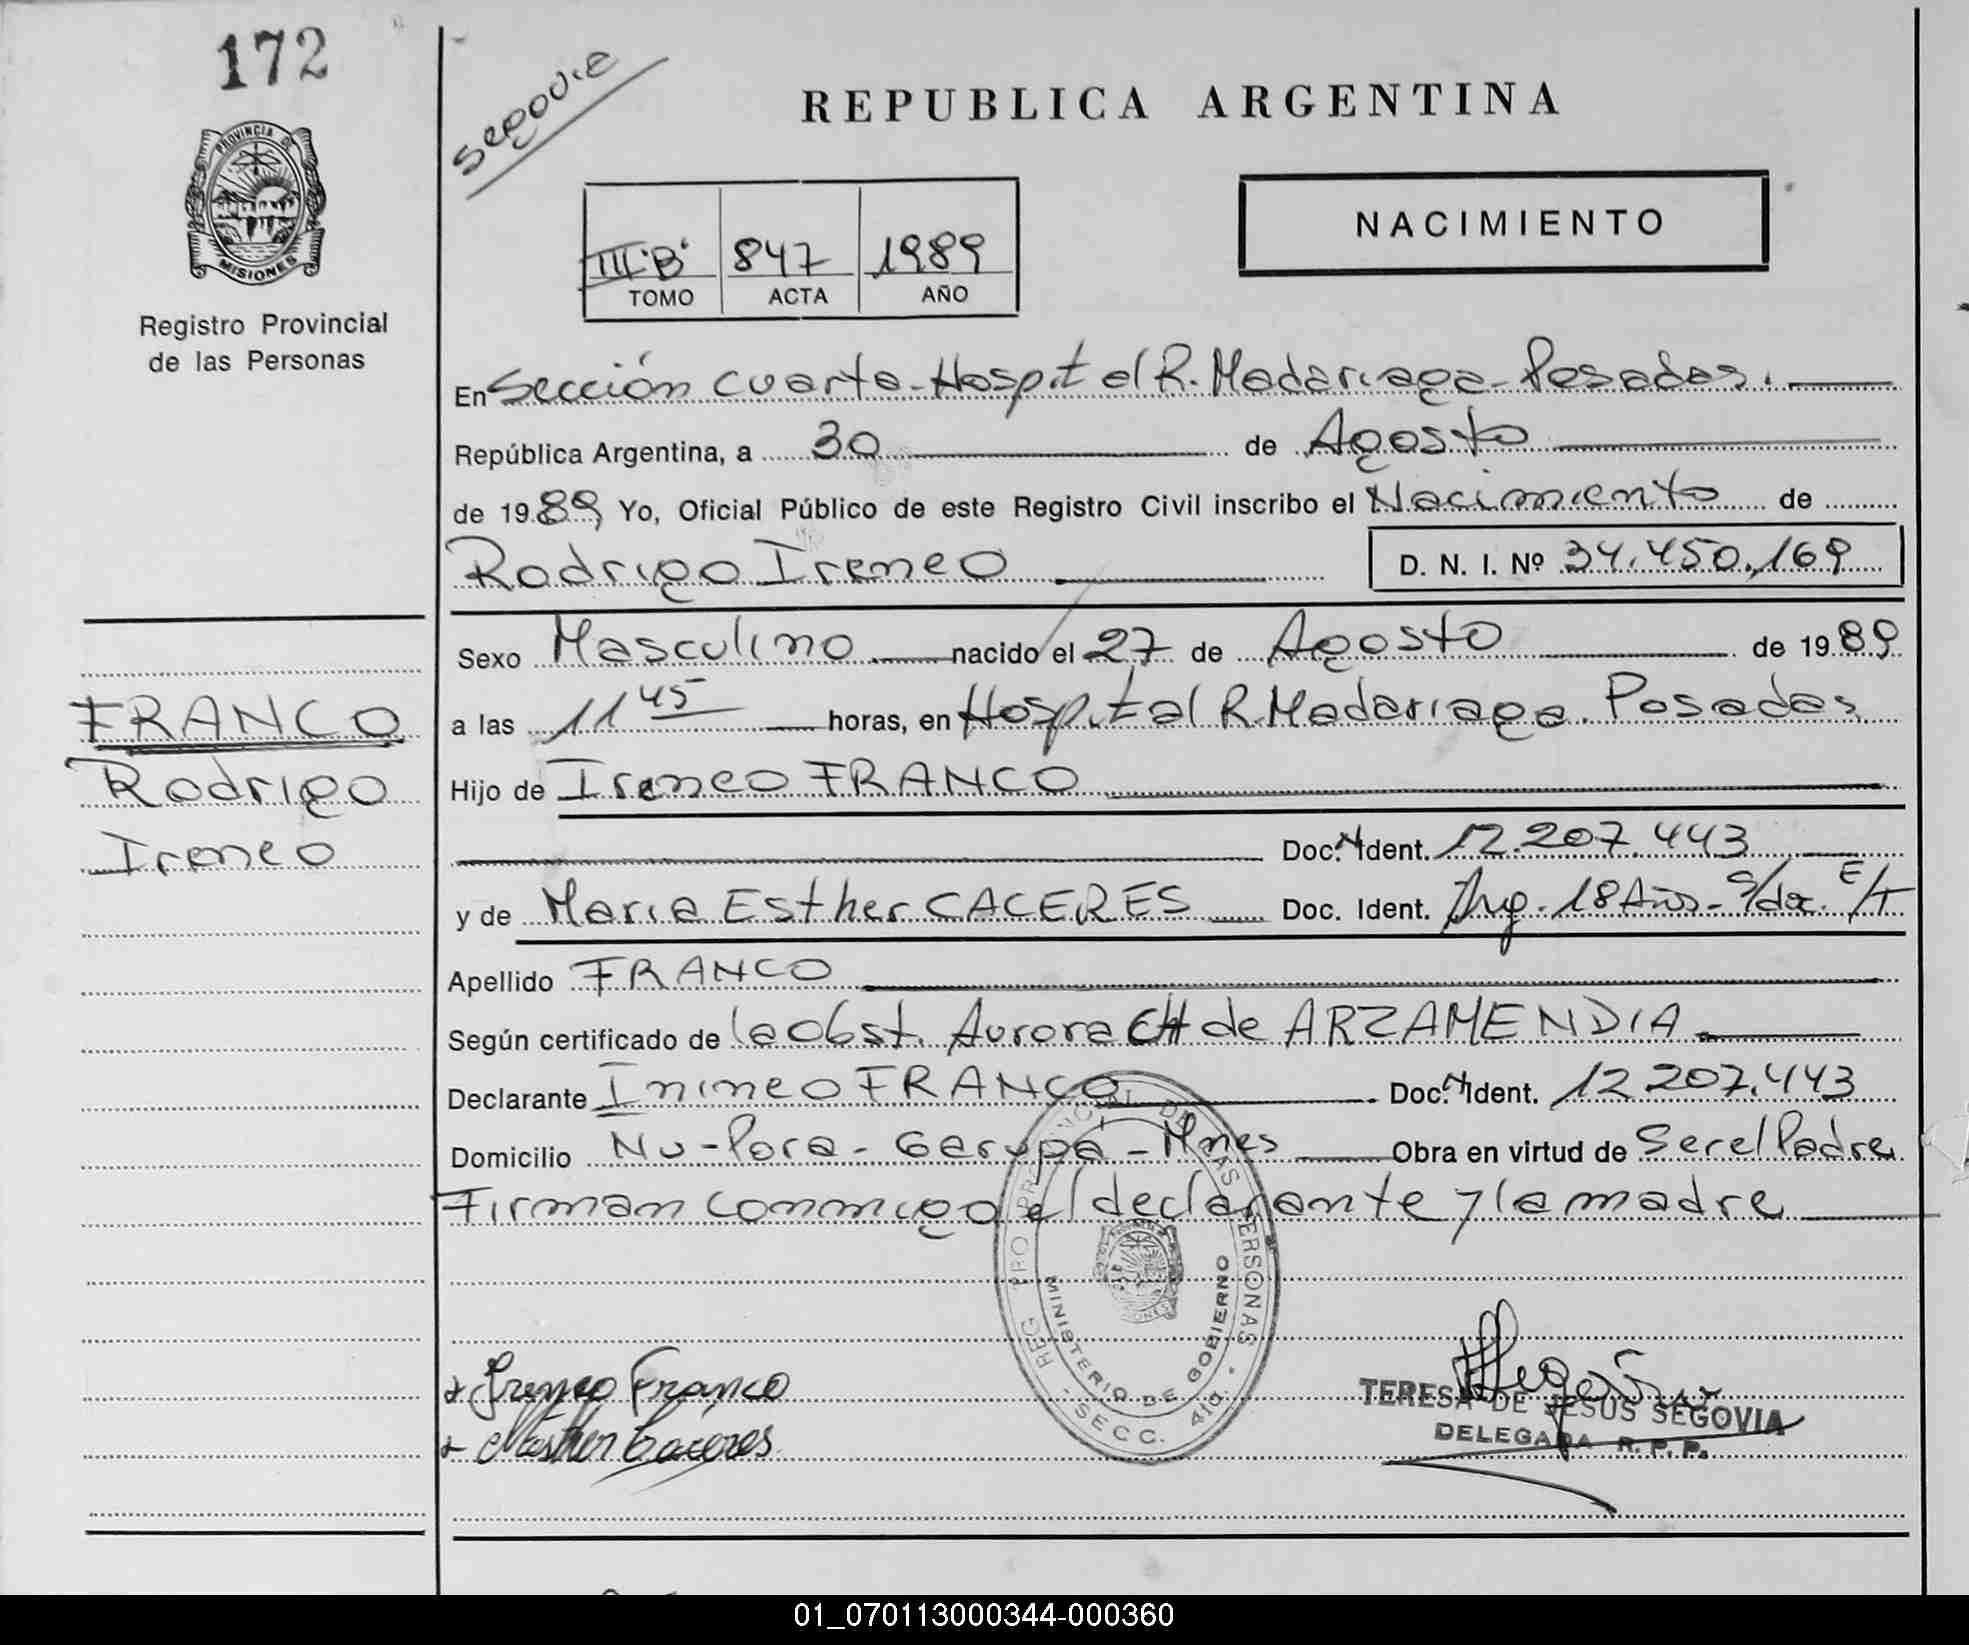 172
Segovia
REPUBLICA ARGENTINA
PROVINCIA DE
MISIONES
Registro Provincial
de las Personas
III "B" 847 1989
TOMO ACTA AÑO
NACIMIENTO
En Sección cuarta - Hospital R. Madariaga - Posadas.
República Argentina, a 30 de Agosto
de 1989, Yo, Oficial Público de este Registro Civil inscribo el Nacimiento de
Rodrigo Ireneo D. N. I. Nº 34.450.169
Sexo Masculino nacido el 27 de Agosto de 1989
a las 11 45 horas, en Hospital R. Madariaga. Posadas
Hijo de Ireneo FRANCO
Doc. N Ident. 12.207.443
y de Maria Esther CACERES Doc. Ident. Arg. 18 Años - s/doc. E/T
Apellido FRANCO
Según certificado de la Obst. Aurora CH de ARZAMENDIA
Declarante Inineo FRANCO Doc. N Ident. 12 207.443
Domicilio Ñu-Pora - Garupá - Mnes Obra en virtud de Ser el Padre
Firman conmigo el declarante y la madre
FRANCO
Rodrigo
Ireneo
REG. PROPROVINCIAL DE LAS PERSONAS
MINISTERIO DE GOBIERNO
SECC. 4ta.
Ireneo Franco
MEsther Cáceres
TERESA DE JESUS SEGOVIA
DELEGADA R. P. P.
01_070113000344-000360